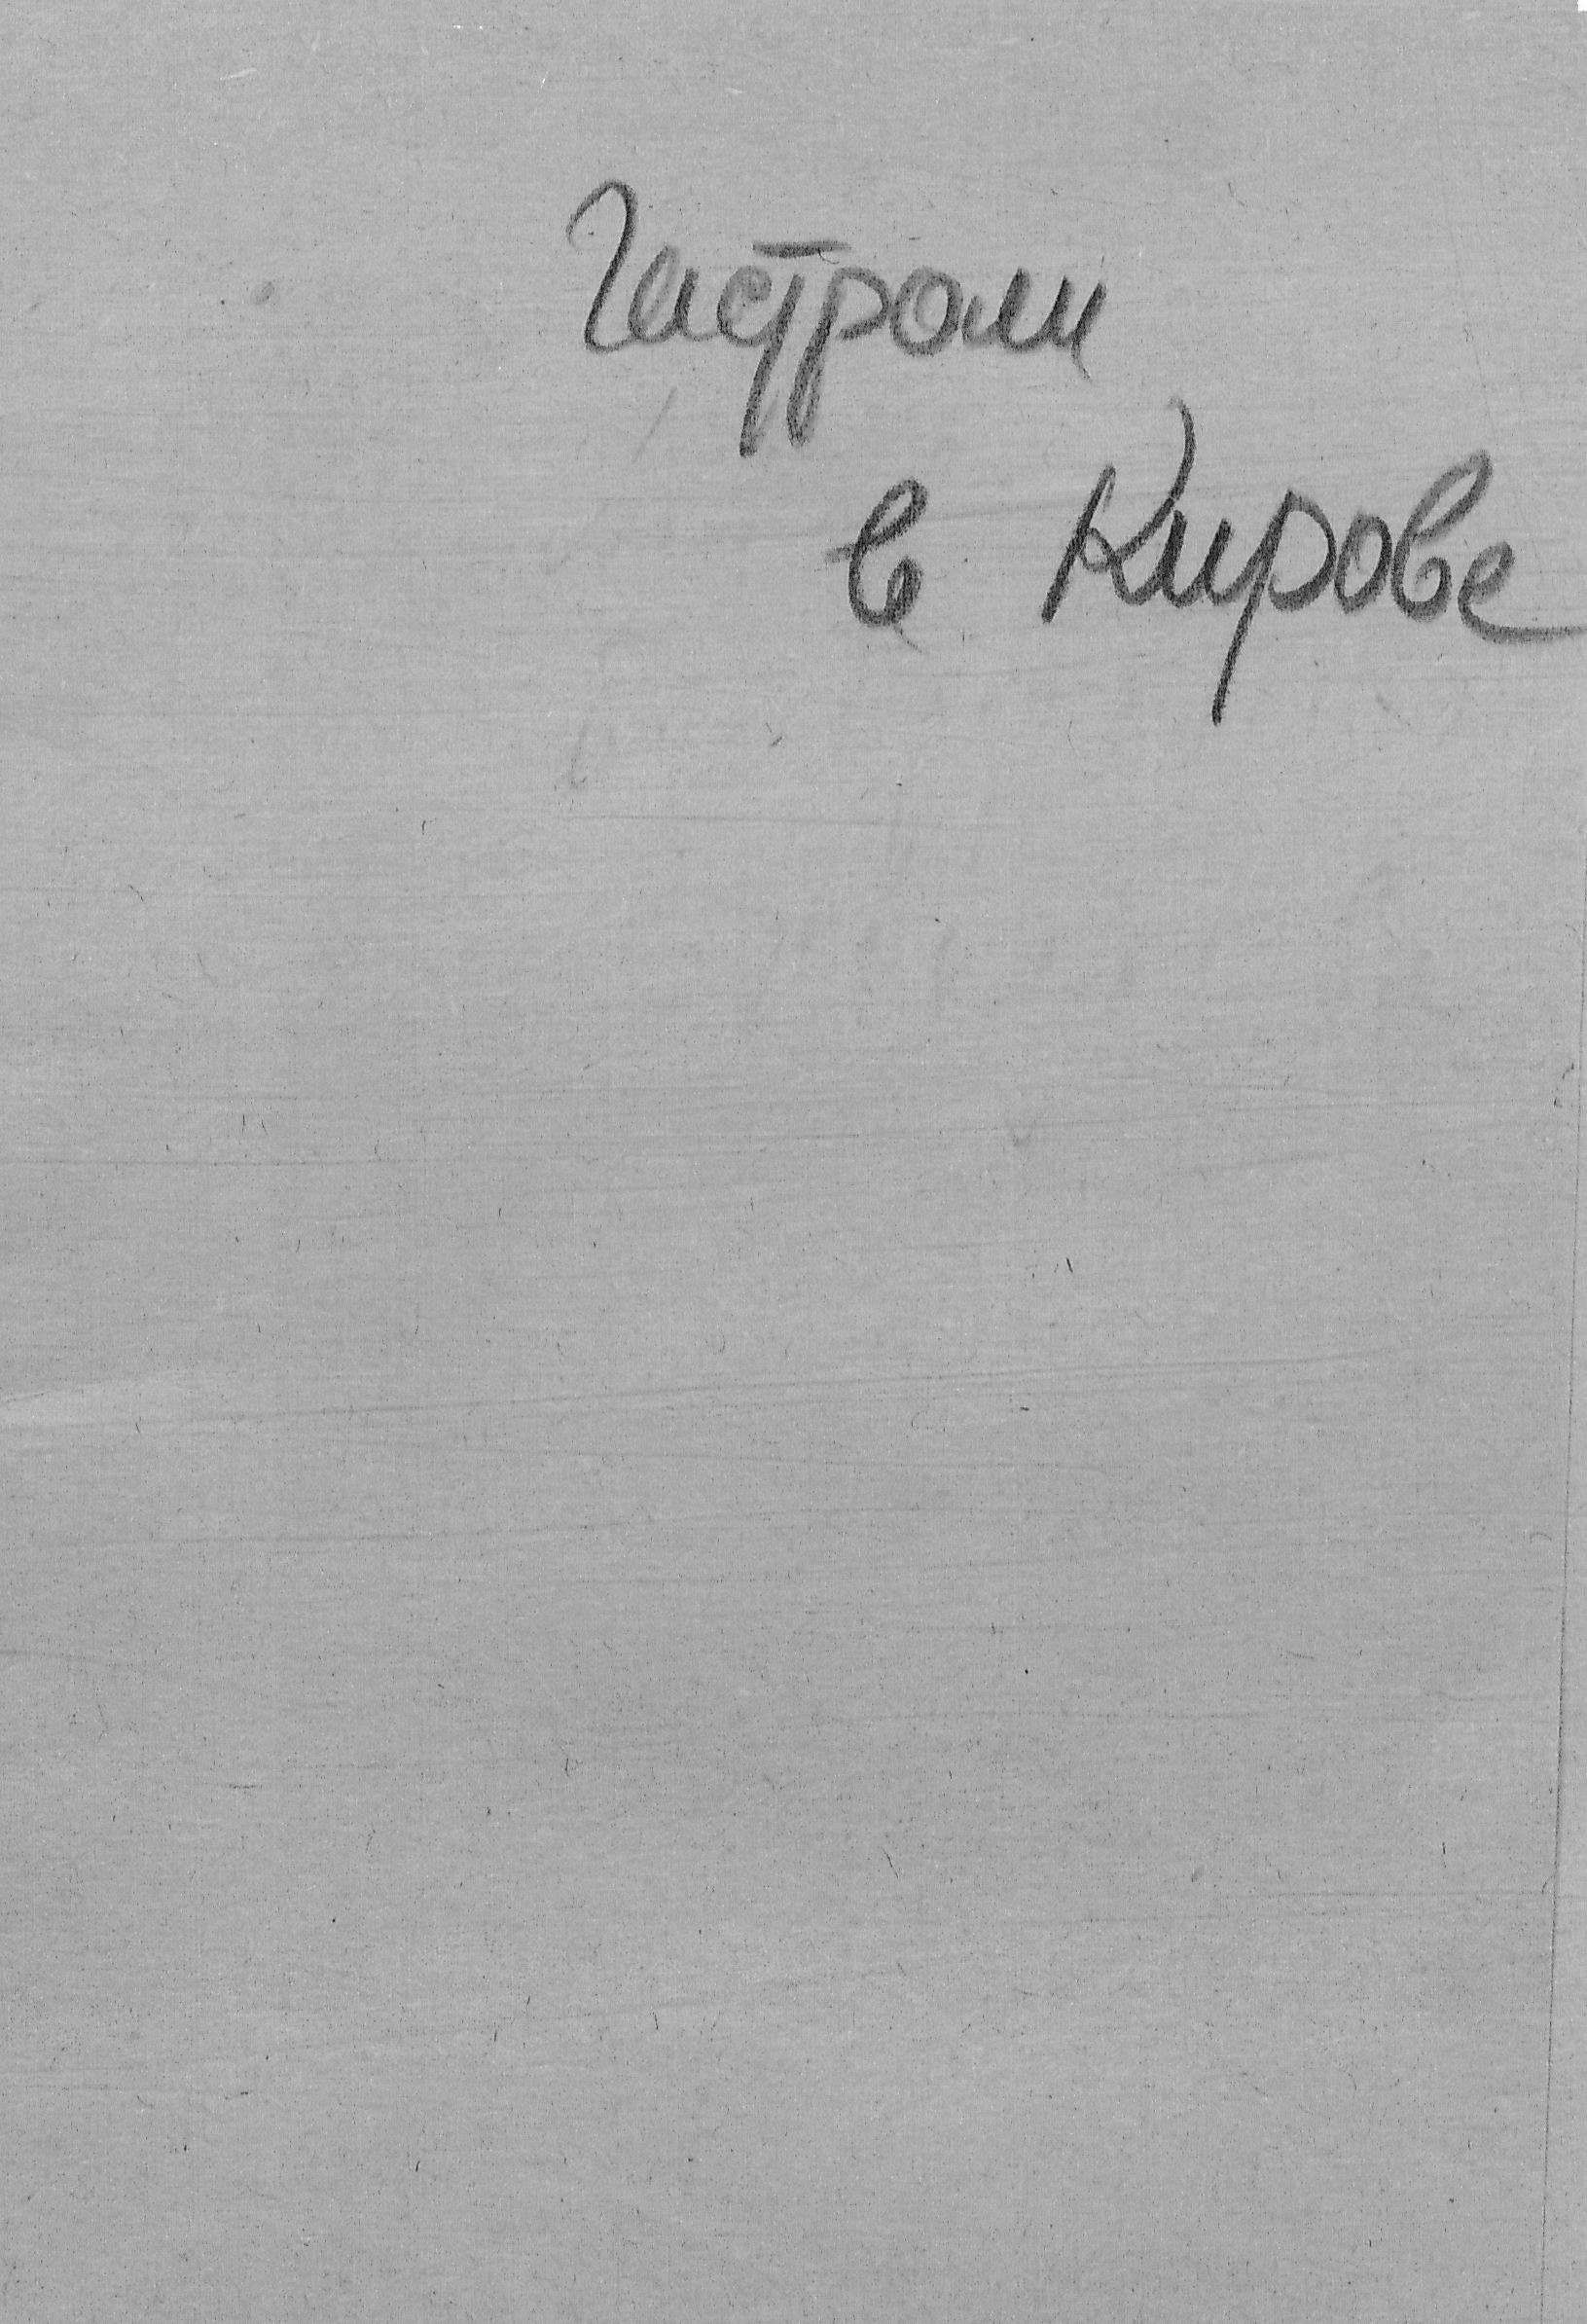 Гастроли
в Кирове